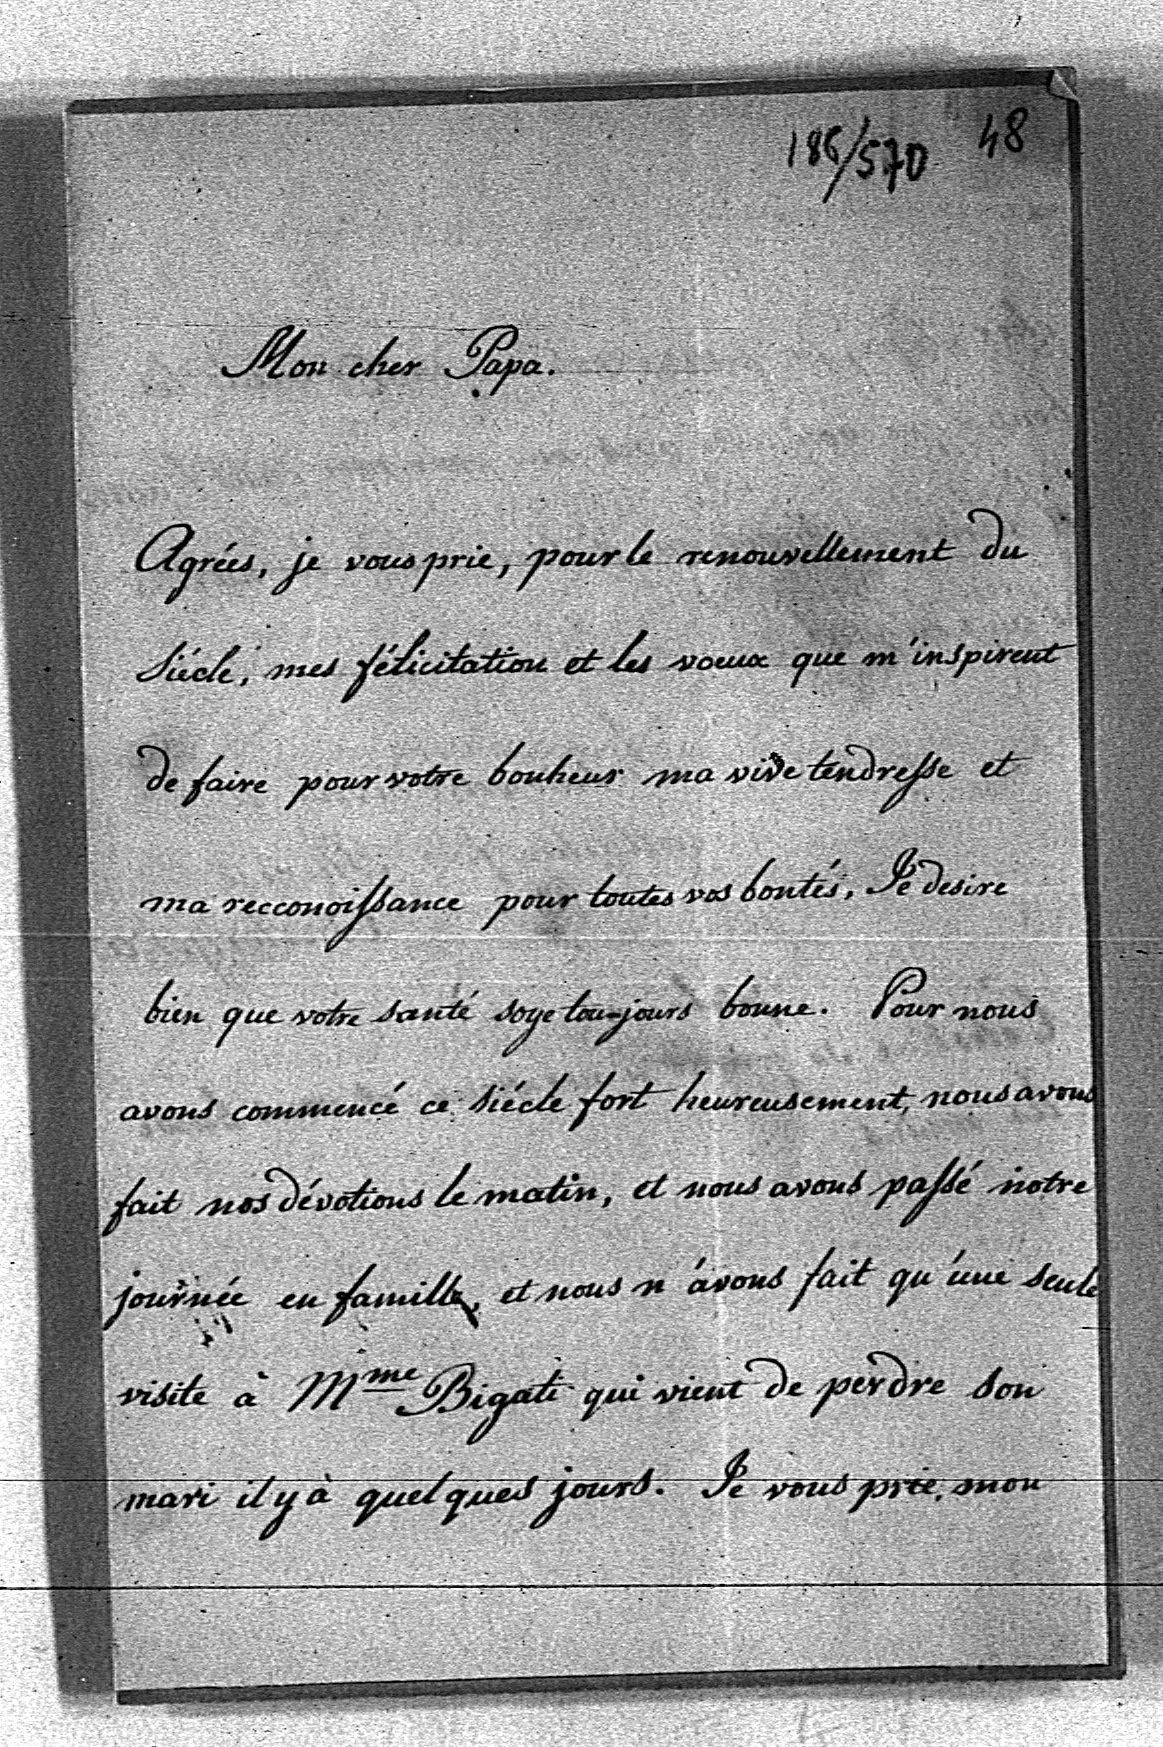 186/570 48
Mon cher Papa.
Agrées, je vous prie, pour le renouvellement du
siécle, mes félicitation et les voeux que m'inspirent
de faire pour votre bonheur ma vive tendresse et
ma recconoissance pour toutes vos bontés, Je desire
bien que votre santé soye tou-jours bonne. Pour nous
avons commencé ce siécle fort heureusement, nous avons
fait nos dévotions le matin, et nous avons passé notre
journée en famille, et nous n'avons fait qu'une seule
visite à Mme Bigati qui vient de perdre son
mari il y à quelques jours. Je vous prie, mon